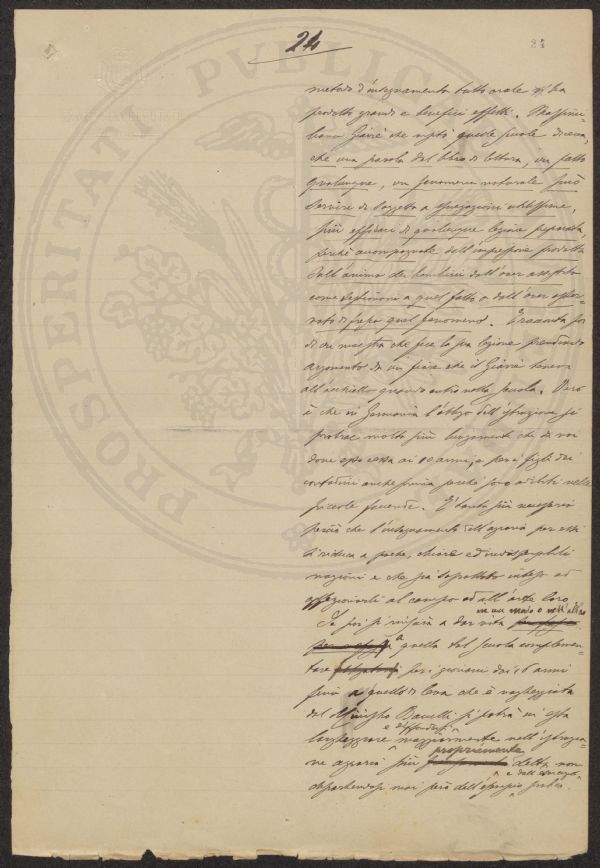 24
25
metodo d'insegnamento tutto orale vi ha
prodotto grandi e benefici effetti. Massimi
liano Giarrè che ispettò quelle scuole diceva,
che una parola del libro di lettura, un fatto
qualunque, un fenomeno naturale può
servire di soggetto a spiegazioni utilissime
più efficaci di qualunque lezione preparata,
perchè accompagnate dall'impressione prodotta
dall'animo dei bambini dall'aver assistito
come testimoni a quel fatto o dall'aver osser-
vato di fresco quel fenomeno. E racconta poi
di una maestra che fece la sua lezione prendendo
argomento da un fiore che il Giarrè teneva
all'occhiello quando entrò nella scuola. Vero
è che in Germania l'obbligo dell'istruzione si
protrae molto più lungamente che da noi
dove esso cessa ai 10 anni, e per i figli dei
contadini anche prima perchè sono adibiti nelle
piccole faccende. E' tanto più necessario
perciò che l'insegnamento dell'agraria per essi
si riduca a poche, chiare ed indispensabili
nozioni e che sia soprattutto inteso ad
affezionarli al campo ed all'arte loro.
Se poi si riuscirà a dar vita in un modo o nell'altro
a quella tal scuola complemen-
tare per i giovani dai 16 anni
fino a quello di leva che è vagheggiata
dal Ministro Baccelli si potrà in essa
largheggiare e diffondersi maggiormente nell'istruzio-
ne agraria più propriamente detta non
dipartendosi mai però dall'esempio e dall'esercizio pratico.
PROSPERITATI PVBLICAE